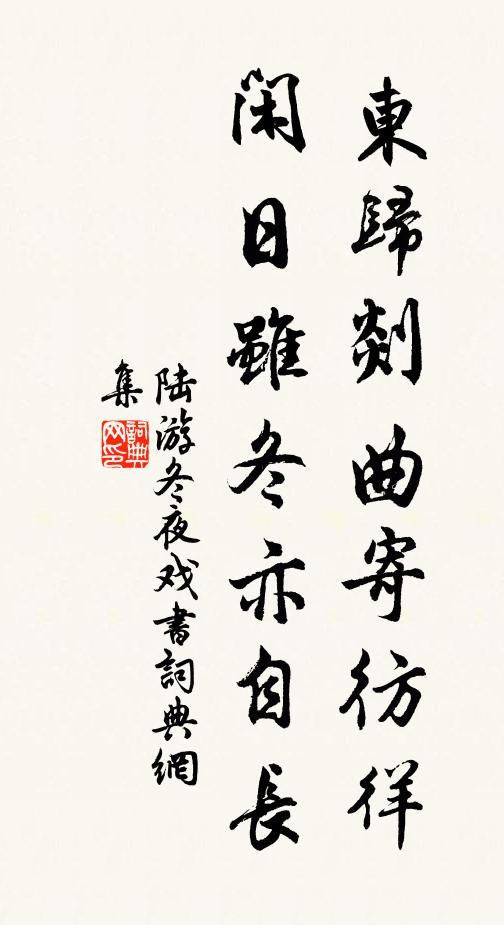 東歸剡曲寄彷徉
閑日雖冬亦自長
陸游冬夜戏書詞典網
集
詞典网印